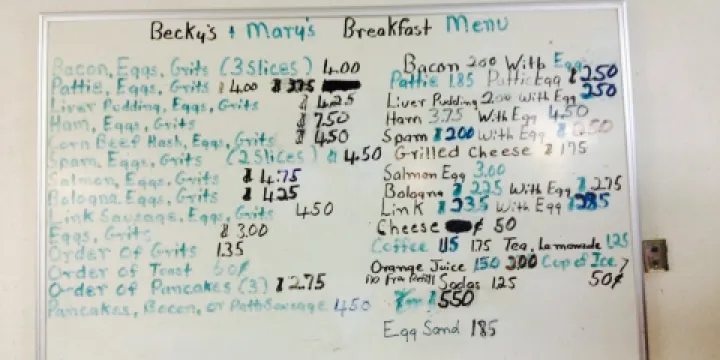 Becky's + Mary's Breakfast Menu
Bacon, Eggs, Grits (3 Slices) 4.00
Pattie, Eggs, Grits $4.00 $3.75
Liver Pudding, Eggs, Grits $4.25
Ham, Eggs, Grits $7.50
Corn Beef Hash, Eggs, Grits $4.50
Spam, Eggs, Grits (2 Slices) $4.50
Salmon, Eggs, Grits $4.75
Bologna, Eggs, Grits $4.25
Link Sausage, Eggs, Grits 4.50
Eggs, Grits $3.00
Order of Grits 1.35
Order of Toast 50¢
Order of Pancakes (3) $2.75
Pancakes, Bacon, or Patti Sausage 4.50
Bacon 2.00 With Egg
Pattie 1.85 Pattie Egg $2.50
Liver Pudding 2.00 With Egg 2.50
Ham 3.75 With Egg 4.50
Spam $2.00 With Egg $2.50
Grilled Cheese $1.75
Salmon Egg 3.00
Bologna $2.25 With Egg $2.75
Link $2.35 With Egg $2.85
Cheese ¢ 50
Coffee 1.15 1.75 Tea, Lamonade 1.25
Orange Juice 1.50 2.00 Cup of Ice
Sodas 1.25 50¢
5.50
Egg Sand 1.85